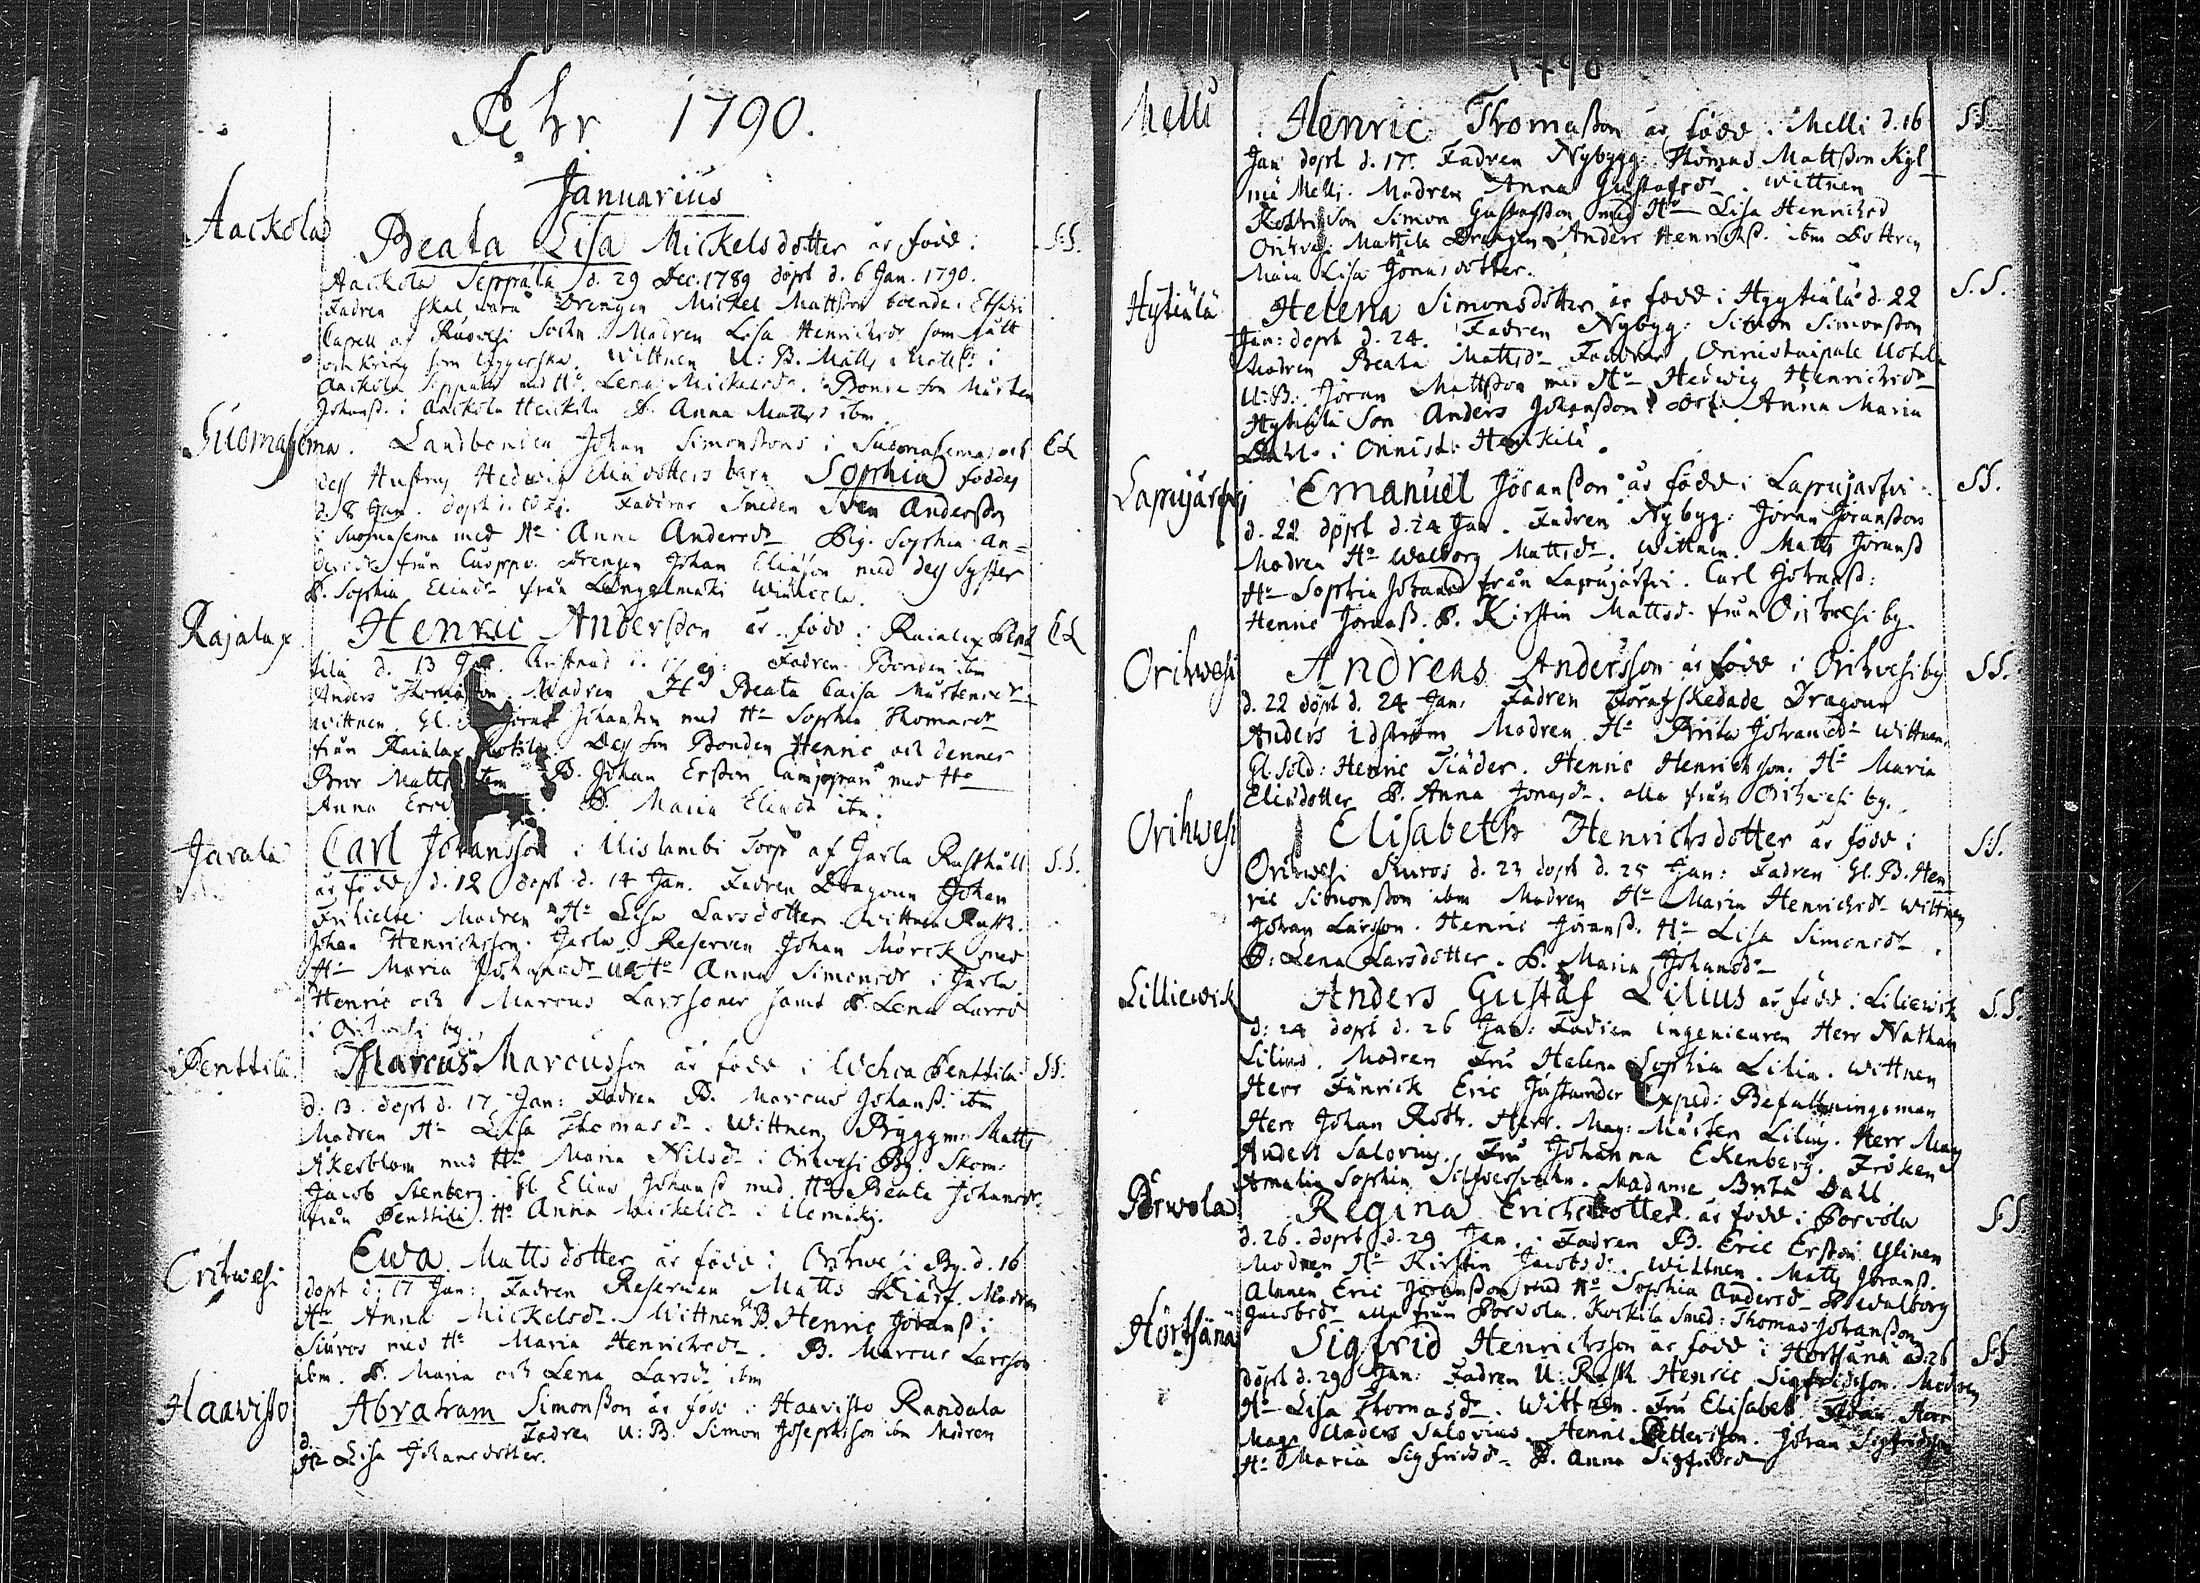 1790.
Januarius
Aackola
Beata Lisa Mickelsdotter är född i S.S.
Aackola Seppälä d. 29 Dec. 1789 döpt d. 6 Jan. 1790.
Fadren skal wara Drengen Mickel Mattsson boende i
Capell af Ruovesi Sockn Modren Lisa Henrichsdr som
Wittnen U: B. Matts i
Aackola Seppälä med Hu Lena Mickelsdr. Bonde Son Mårten
Johanss. i Aackola Heickilä P. Anna Matts ibm
Suomasema. Landbonden Johan Simonssons i Suomasema och CL
dess Hustrus Hedwig Eliædotters barn Sophia föddes
d. 8 Jan. döpt d. Faddrar Smeden Sven Andersson
i Suomasema med Hu Anna Andersdr Pig. Sophia An=
dersdr från Cuoppo. Drengen Johan Eliæson med dess Syster
P. Sophia Eliædr från Längelmäki
Rajalax Henric Andersson är född i Rajalax Pent CL
tilä d. 13 Jan. Christnad d. 17 ej: Fadren Bonden ibm
Anders Thomasson. Modren Hu Beata Caisa Mårtensdr
Wittnen. Johansson med Hu Sophia Thomasdr
från Rajalax Dess Son Bonden Henric och dennes
Bror Matts ibm B. Johan Ersson med Hu
Anna P. Maria Eliædr ibm.
Jarala Carl Johansson i Torp af Jarla Rusthåll S.S.
är född d. 12 döpt d. 14 Jan. Fadren Dragoun Johan
Modren Hu Lisa Larsdotter Wittnen Rusth.
Johan Henrichsson Jarla. Reserven Johan Mörck med
Hu Maria Johansdr Anna Simonsdr i Jarla
Henric och Marcus Larssoner samt P. Lena Larsd
i Orihvesi by.
Penttilä Marcus Marcusson är född i Penttilä S.S.
d. 13. döpt d. 17 Jan: Fadren B. Marcus Johanss. ibm
Modren Hu Lisa Thomasdr. Wittnen Byggm: Matts
Åkerblom med Hu Maria Nilsdr i Orihvesi By. Skom:
Jacob Stenberg. Gl Elias Johanss med Hu Beata Johansdr.
från Penttilä. Hu Anna Mickelsdr i
Orihwesi Ewa Mattsdotter är född i Orihwesi By. d. 16
döpt d: 17 Jan: Fadren Reserven Matts Modren
Hu Anna Mickelsdr. Wittnen Gl B. Henric Jöranss i
Siuros med Hu Maria Henrichsdr. B. Marcus Larsson
ibm. P. Maria och Lena Larsdr ibm
Haawisto Abraham Simonsson är född i Haavisto Randala
d. Fadren U: B. Simon Josephsson ibm Modren
Hu Lisa Johansdotter.
1790
Melli Henric Thomasson är född i Melli d. 16 S.S.
Jan döpt d. 17. Fadren Nybygg: Thomas Mattsson
Melli. Modren Anna Gustafsdr. Wittnen
Simon Gustafsson med Hu Lisa Henrichsd
Orihvesi Mattila Drengen Anders Henrichss. ibm Dottren
Maia Lisa Jöransdotter.
Hytiälä Helena Simonsdotter är född i Hyytiälä d. 22 S.S.
Jan: döpt d. 24. Fadren Nybyg: Simon Simonsson
Modren Beata Mattsdr Faddrar Onnistaipale Uotila
U: B. Jöran Mattsson med Hu Hedwig Henrichsdr
Hytiälä Son Anders Johansson Anna Maria
Dahl i Onnist: Heickilä.
Lapujärfvi Emanuel Jöransson är född i Lapujärfvi S.S.
d. 22 döpt d. 24 Jan. Fadren Nybyg: Jöran Jöransson
Modren Hu Walborg Mattsdr. Wittnen. Matts Jöranss
Hu Sophia Johansd från Lapujärfvi. Carl Johanss:
Henric Jöranss. P. Kirstin Mattsd. från Orihvesi by.
Orihwesi Andreas Andersson är född i Orihvesi by S.S.
d. 22 döpt d. 24 Jan: Fadren Förafskedade Dragoun
Anders Idström Modren Hu Brita Johansdr Wittnen.
Gl. Sold: Henric Tiäder. Henric Henrichsson. Hu Maria
Eliædotter P. Anna Jonasdr. alla från Orihvesi by.
Orihwesi Elisabeth Henrichsdotter är född i S.S.
Orihvesi Siuros d. 23 döpt d. 25 Jan: Fadren Gl. B. Hen
ric Simonsson ibm Modren Hu Maria Henrichsdr Wittnen
Johan Larsson. Henric Jöranss. Hu Lisa Simonsdr.
P: Lena Larsdotter. P. Maria Johansdr
Lilliewick Anders Gustaf Lilius är född i Liliewick S.S.
d: 24 döpt d. 26 Jan: Fadren ingenieuren Herr Nathan
Lilius. Modren Fru Helena Sophia Lilia. Wittnen
Herr Fänrick Eric Justander Exped: Befallningsman
Herr Johan Roth. Herr. Mag: Mårten Lilius. Herr Mag
Anders Salovius. Fru Johanna Ekenberg. Fröken
Amalia Sophia Silfversvahn. Madame Brita Dahl.
Pörwola Regina Erichsdotter är född i Porvola S.S
d. 26. döpt d. 29 Jan. Fadren B. Eric Ersson Ylinen
Modren Hu Kirstin Jacobsdr. Wittnen. Matts Jöranss.
Alanen Eric Jöransson med Hu Sophia Andersdr P. Walborg
Jacobsdr alla från Porvola. Kockila Smed: Thomas Johansson
Hörtsänä Sigfrid Henrichsson är född i Hörtsänä d. 26 S.S
döpt d. 29 Jan: Fadren U: Rusth. Henric Sigfridsson. Modren
Hu Lisa Thomasdr. Wittnen. Fru Elisabet Herr
Mag: Anders Salovius. Henric Pettersson. Johan Sigfridsson
Hu Maria Sigfridsdr. P. Anna Sigfridsdr